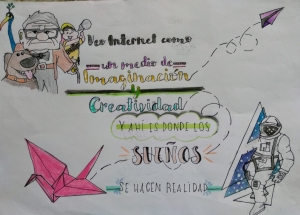 Veo Internet como
un medio de
Imaginación
y
Creatividad
Y AHÍ ES DONDE LOS
SUEÑOS
SE HACEN REALIDAD